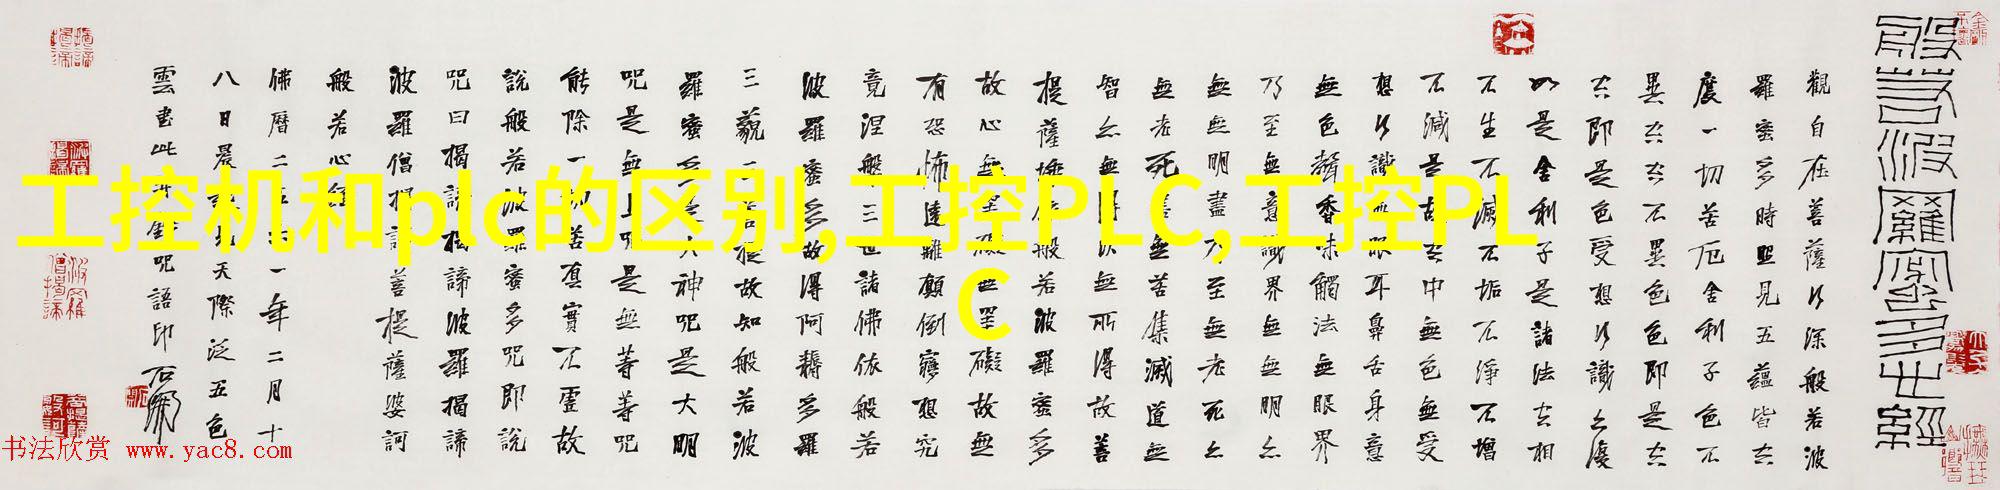 工控机和plc的区别,工控PLC,工控PL
C
般若波羅蜜多心經
觀自在菩薩行深般若波
羅蜜多時照見五蘊皆空
度一切苦厄舍利子色不
異空空不異色色即是空
空即是色受想行識亦復
如是舍利子是諸法空相
不生不滅不垢不淨不增
不減是故空中無色無受
想行識無眼耳鼻舌身意
無色聲香味觸法無眼界
乃至無意識界無無明亦
無無明盡乃至無老死亦
無老死盡無苦集滅道無
智亦無得以無所得故菩
提薩埵依般若波羅蜜多
故心無罣礙無罣礙故無
有恐怖遠離顛倒夢想究
竟涅般三世諸佛依般若
波羅蜜多故得阿耨多羅
三藐三菩提故知般若波
羅蜜多是大神咒是大明
咒是無上咒是無等等咒
能除一切苦真實不虛故
說般若波羅蜜多咒即說
咒曰揭諦揭諦波羅揭諦
波羅僧揭諦菩提薩婆訶
般若心經
佛曆二五一年二月十
八日晨北天際泛五色
雲書此咒語印
石
书法欣赏 www.yac8.com